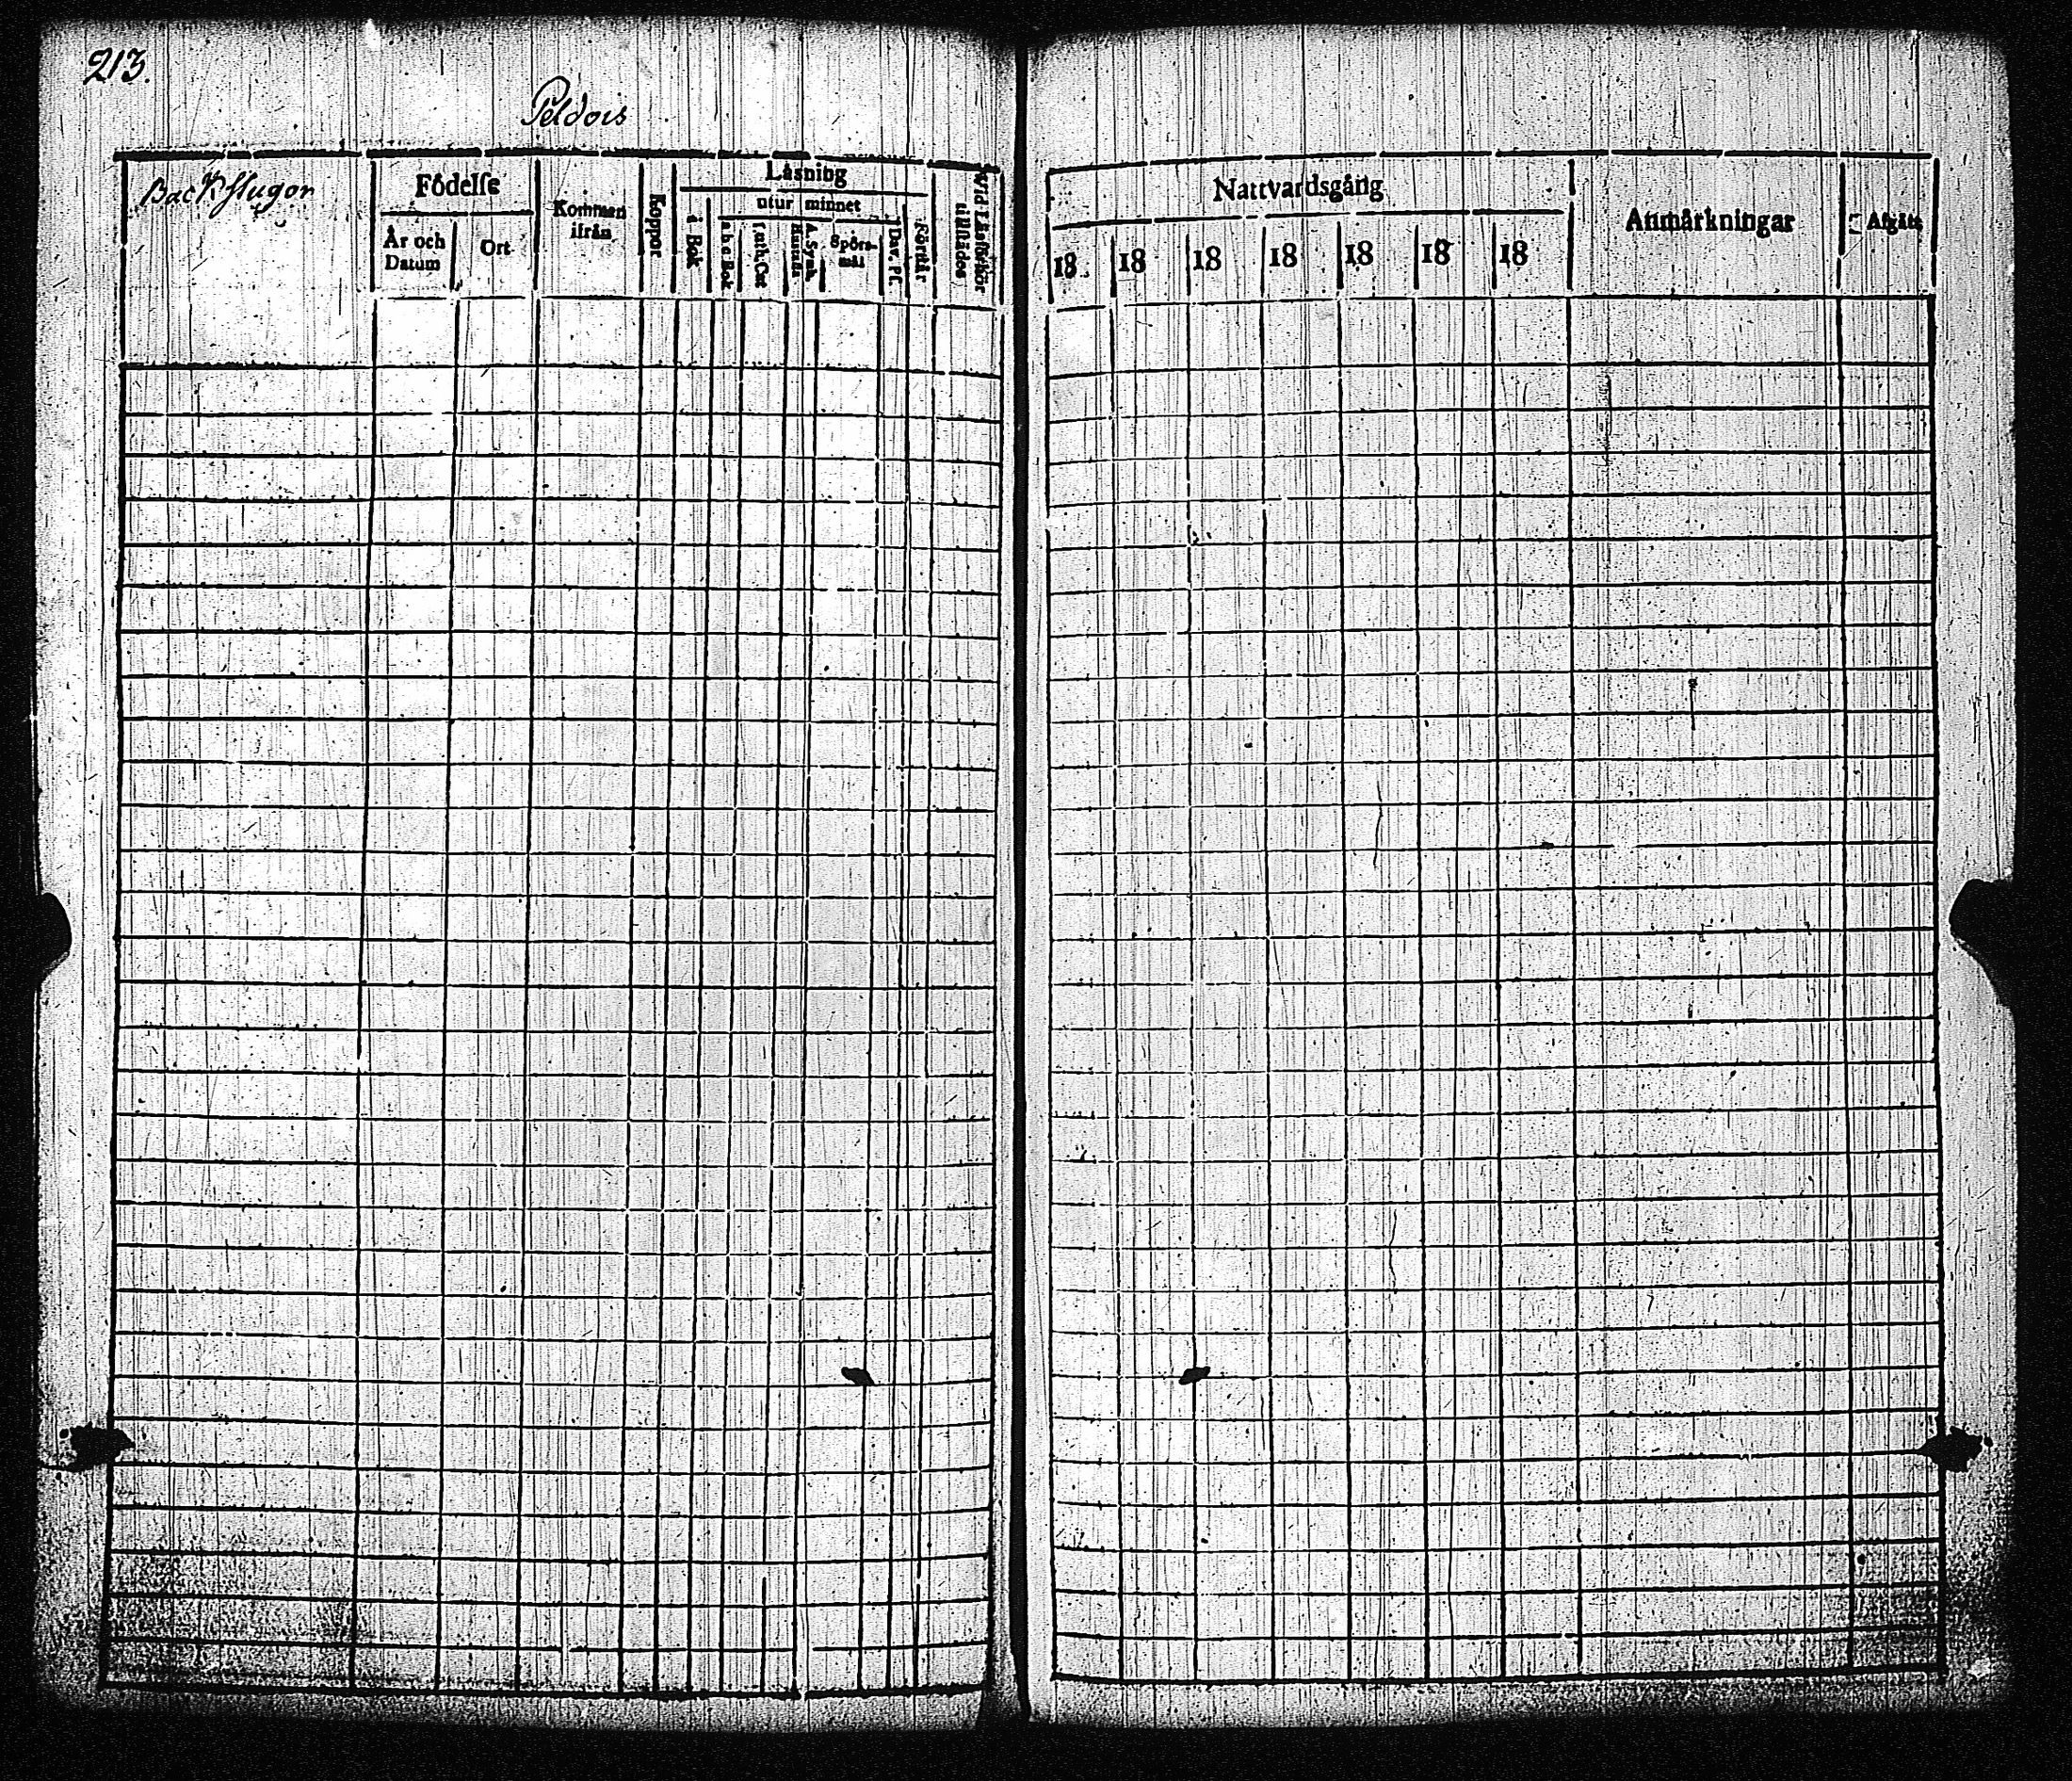 213.
Peldois
Backstugor
Födelse
År och Datum
Ort
Kommen ifrån
Koppor
Läsning
i Bok
utur minnet
a b c Bok
Luth. Cat
A. Symb. Hustafl.
Spörs-mål
Dav. Ps.
Förstår
Wid Läsförhör tillstädes
Nattvardsgång
18 18 18 18 18 18 18
Anmärkningar
Afgått